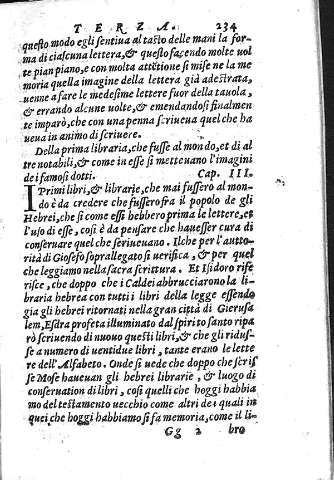 TERZA. 234
questo modo egli sentiua al tatto delle mani la for-
ma di ciascuna lettera, & questo facendo molte uol
te pian piano, e con molta attētione si mise ne la me
moria quella imagine della lettera già adestrata,
uenne a fare le medesime lettere fuor della tauola,
& errando alcune uolte, & emendandosi finalmen
te imparò, che con una penna scriueua quel che ha
ueua in animo di scriuere.
Della prima libraria, che fusse al mondo, et di al
tre notabili, & come in esse si metteuano l'imagini
de i famosi dotti. Cap. III.
I Primi libri, & librarie, che mai fussero al mon-
do è da credere che fussero fra il popolo de gli
Hebrei, che si come essi hebbero prima le lettere, et
l'uso di esse, così è da pensare che hauesser cura di
conseruare quel che scriueuano. Ilche per l'autto-
rità di Giosefo sopra llegato si uerifica, & per quel
che leggiamo nella sacra scrittura. Et Isidoro rife
risce, che doppo che i Caldei abbrucciarono la li-
braria hebrea con tutti i libri della legge essendo
gia gli hebrei ritornati nella gran città di Gierusa
lem, Esdra profeta illuminato dal spirito santo ripa
rò scriuendo di nuouo questi libri, & che gli ridus-
se a numero di uentidue libri, tante erano le lette
re dell'Alfabeto. Onde si uede che doppo che scris
se Mose haueuan gli hebrei librarie, & luogo di
conseruation di libri, così quelli che hoggi habbia
mo del testamento uecchio come altri de i quali in
quei che hoggi habbiamo si fa memoria, come il li-
Gg 2 bro